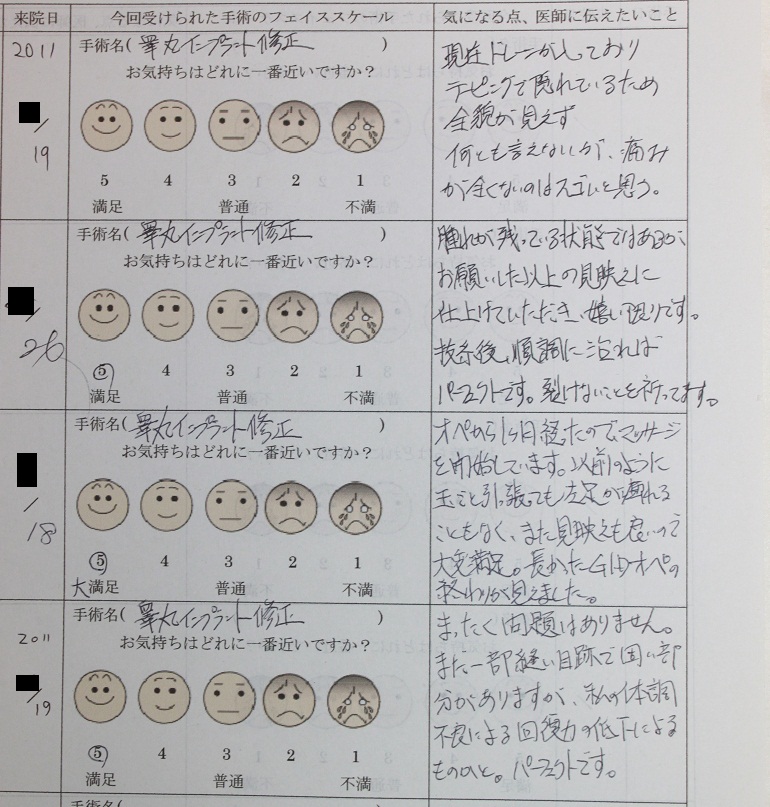 来院日
今回受けられた手術のフェイススケール
気になる点、医師に伝えたいこと
2011
/
19
手術名( 睾丸インプラント修正 )
お気持ちはどれに一番近いですか？
5 4 3 2 1
満足 普通 不満
現在ドレーンがしっており
テーピングで隠れているため
全貌が見えず
何とも言えないしが、痛み
が全くないのはスゴいと思う。
/
26
手術名( 睾丸インプラント修正 )
お気持ちはどれに一番近いですか？
5 4 3 2 1
満足 普通 不満
腫れが残っている状態ではあるが、
お願いした以上の見映えに
仕上げていただき、嬉しい限りです。
抜糸後、順調に治れば
パーフェクトです。裂けないことを祈ってます。
/
18
手術名( 睾丸インプラント修正 )
お気持ちはどれに一番近いですか？
5 4 3 2 1
大満足 普通 不満
オペから1ヶ月経ったのでマッサージ
を開始しています。以前のように
玉ごと引っ張っても左足が痺れる
こともなく、また見映えも良いので
大変満足。長かったGIDオペの
終わりが見えました。
2011
/
19
手術名( 睾丸インプラント修正 )
お気持ちはどれに一番近いですか？
5 4 3 2 1
満足 普通 不満
まったく問題はありません。
また一部縫い目跡で固い部
分がありますが、私の体調
不良による回復力の低下による
ものかと。パーフェクトです。
手術名(